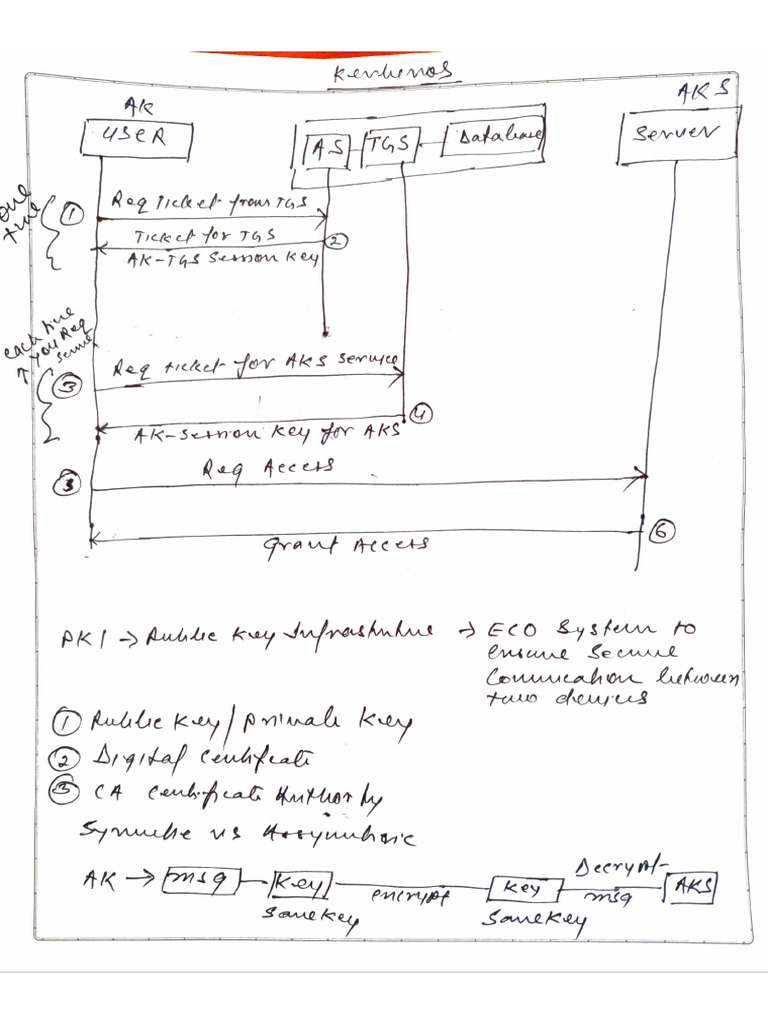 Kerberos
AK
AKS
USER
AS
TGS
Database
Server
one time
① Req Ticket from TGS
Ticket for TGS ②
AK-TGS Session Key
each time you Req Serve
③ Req ticket for AKS Service
④
AK-Session Key for AKS
Req Access
⑤
⑥
Grant Access
PKI → Public Key Infrastructure → ECO System to
ensure Secure
Communication between
two devices
① Public Key / Private Key
② Digital Certificate
③ CA Certificate Authority
Symmetric vs Assymmetric
Decrypt
AK → msg Key encrypt Key msg AKS
Same Key Same Key